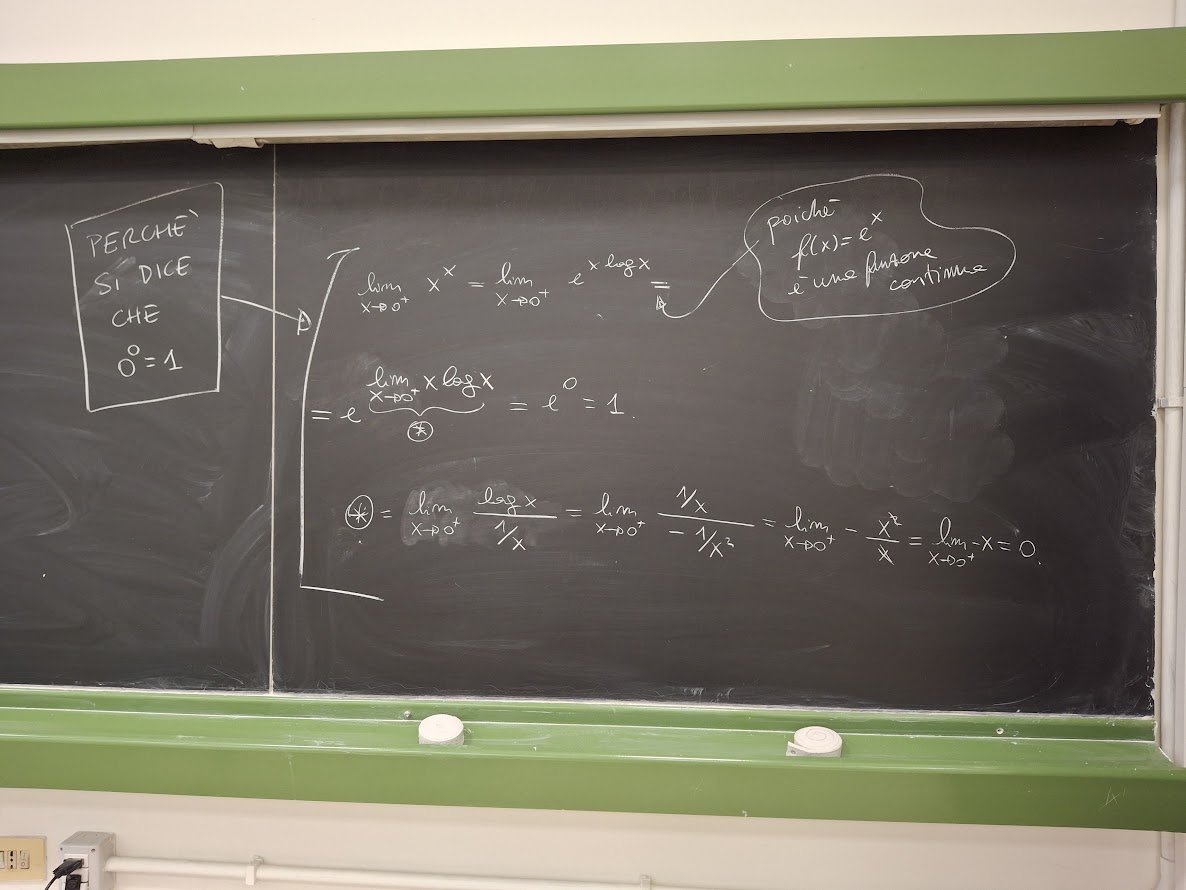 PERCHÈ
SI DICE
CHE
0⁰ = 1
lim x→0⁺ xˣ = lim x→0⁺ e^(x log x) =
poiché
f(x) = eˣ
è una funzione
continua
= e^(lim x→0⁺ x log x) = e⁰ = 1.
⊛
⊛ = lim x→0⁺ (log x)/(1/x) = lim x→0⁺ (1/x)/(-1/x²) = lim x→0⁺ - x²/x = lim x→0⁺ -x = 0.